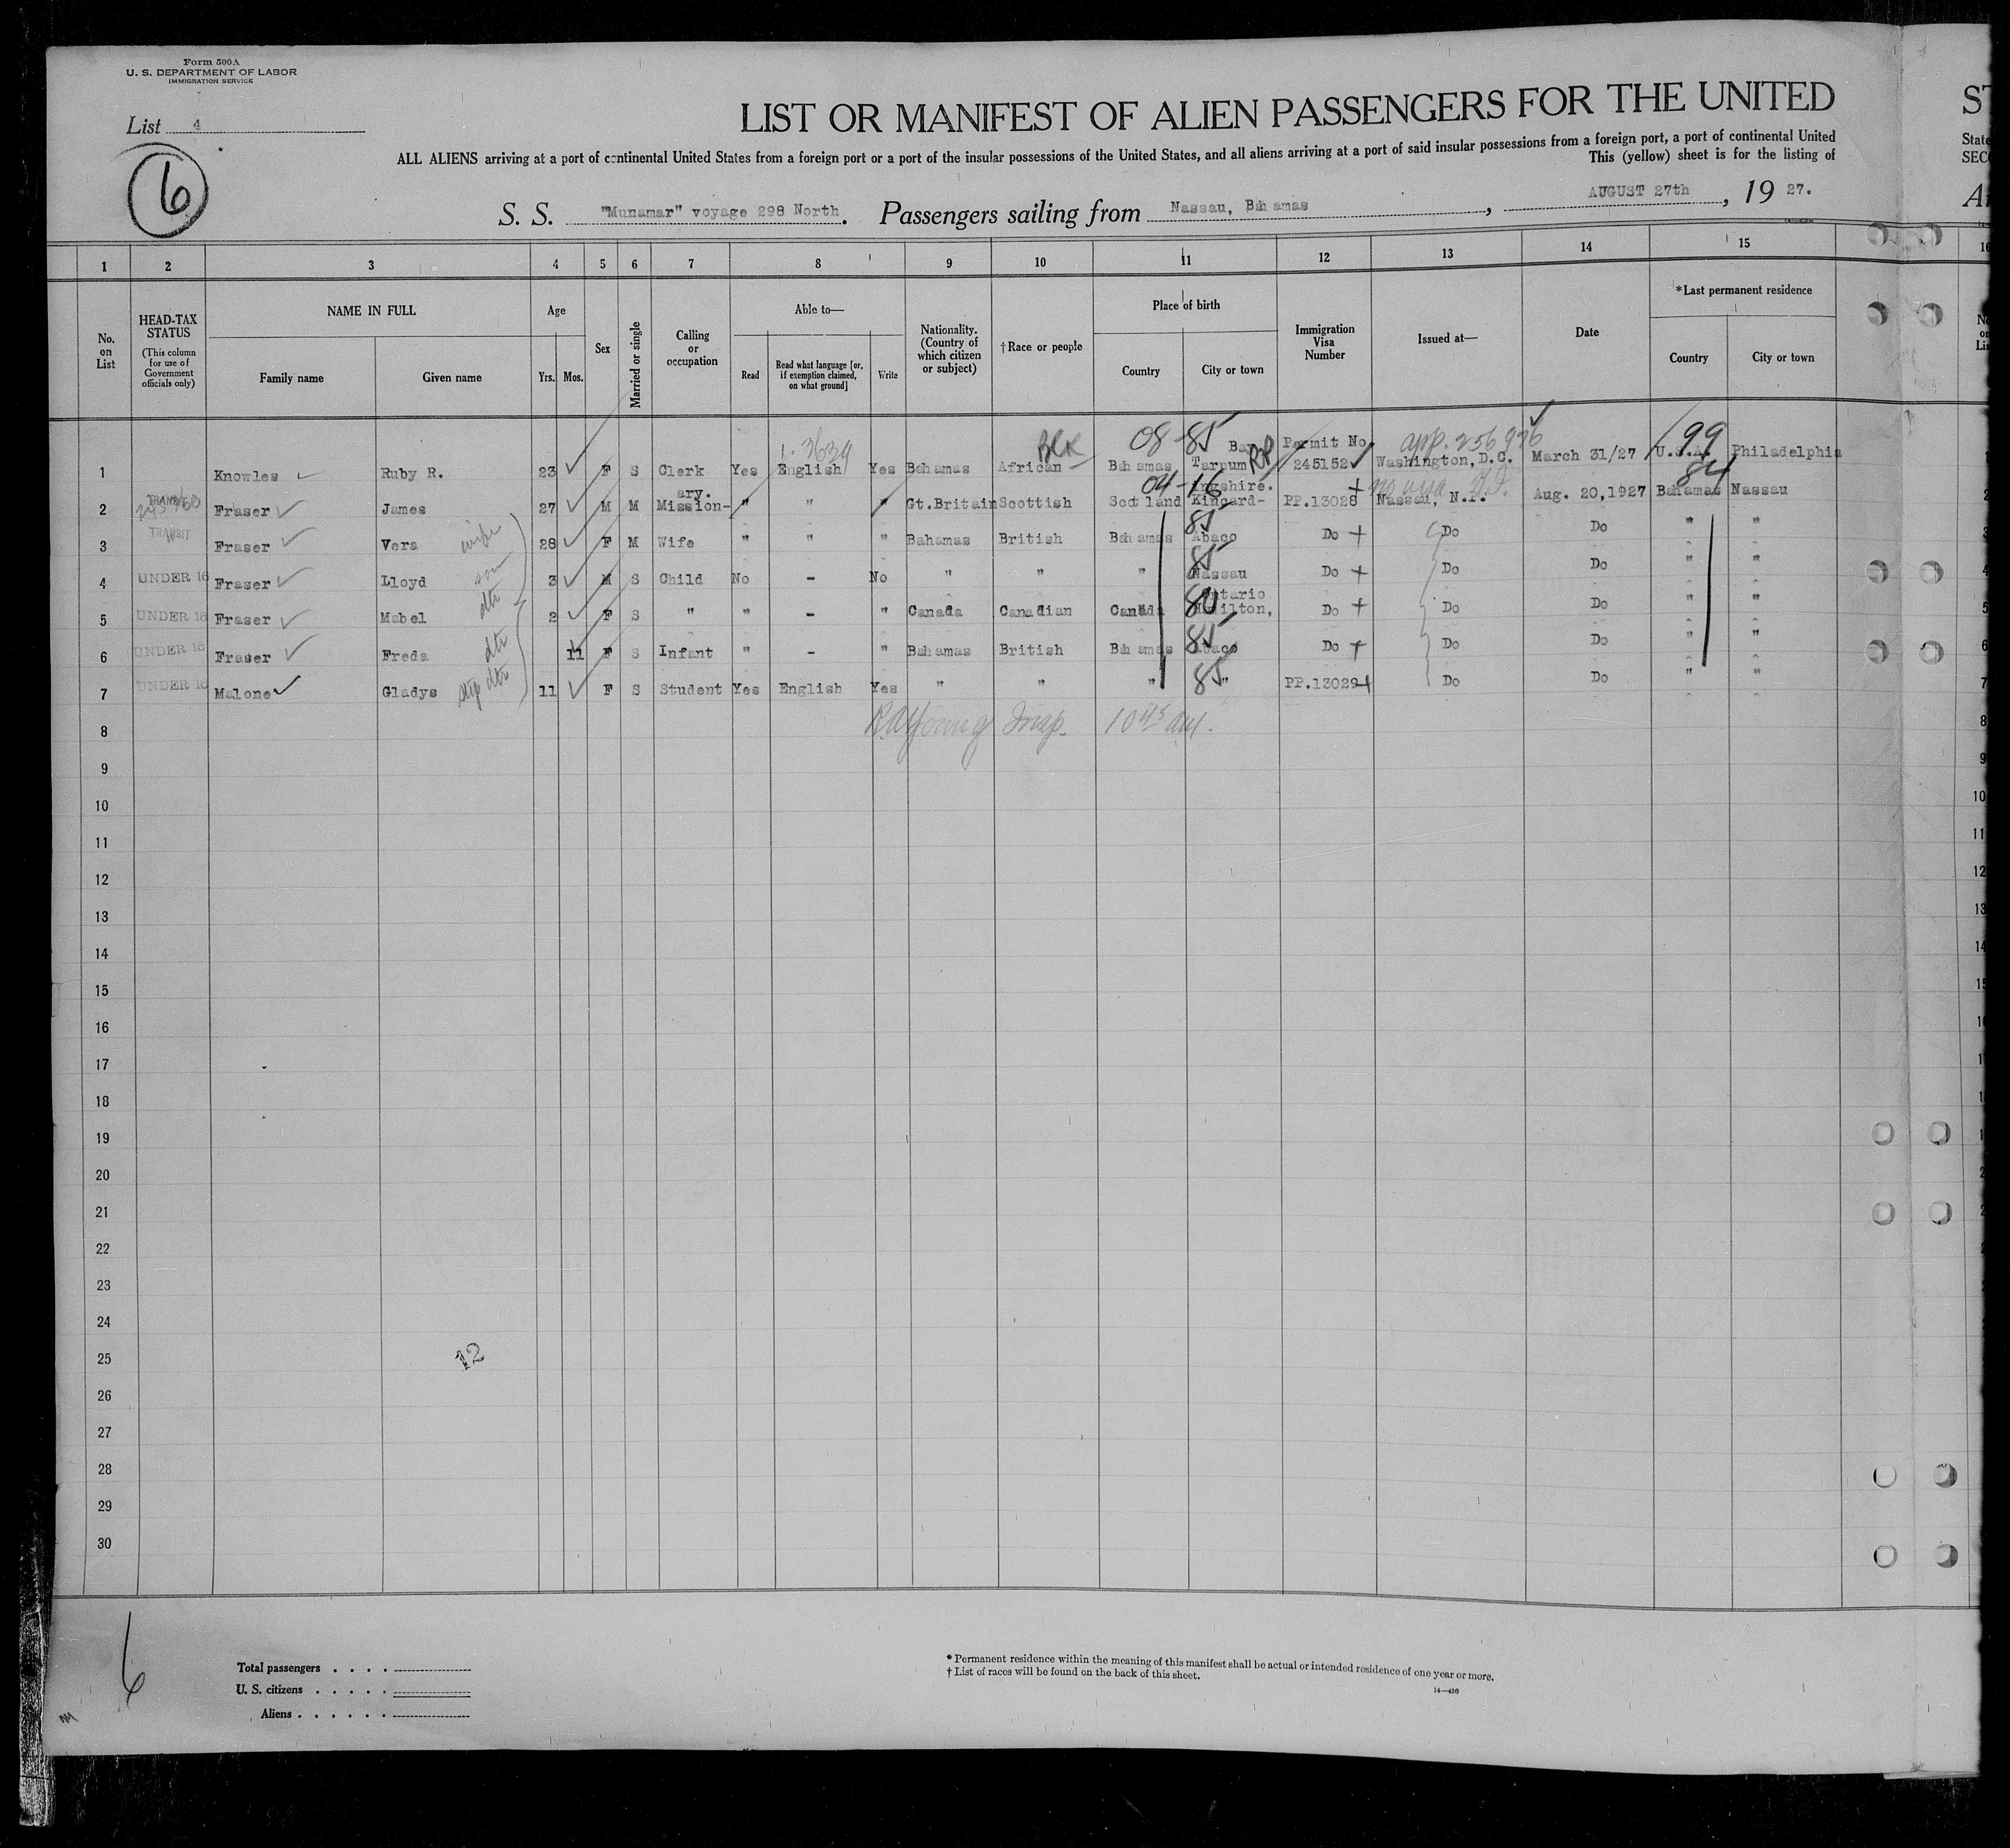 Form 500A
U. S. DEPARTMENT OF LABOR
IMMIGRATION SERVICE
List 4
6
LIST OR MANIFEST OF ALIEN PASSENGERS FOR THE UNITED ST
ALL ALIENS arriving at a port of continental United States from a foreign port or a port of the insular possessions of the United States, and all aliens arriving at a port of said insular possessions from a foreign port, a port of continental United State
This (yellow) sheet is for the listing of SEC
S. S. "Munamar" voyage 298 North. Passengers sailing from Nassau, Bahamas, AUGUST 27th, 19 27.
1 2 3 4 5 6 7 8 9 10 11 12 13 14 15 16
No. on List
HEAD-TAX STATUS (This column for use of Government officials only)
NAME IN FULL
Family name
Given name
Age
Yrs. Mos.
Sex
Married or single
Calling or occupation
Able to—
Read
Read what language [or, if exemption claimed, on what ground]
Write
Nationality. (Country of which citizen or subject)
†Race or people
Place of birth
Country
City or town
Immigration Visa Number
Issued at—
Date
*Last permanent residence
Country
City or town
1 Knowles Ruby R. 23 F S Clerk Yes English Yes Bahamas African Blk Bahamas 08-85 Bay Tarpum Permit No 245152 app. 256926 Washington, D.C. March 31/27 U.S.A. 99 Philadelphia
2 TRANSIT Fraser James 27 M M Mission-ary. " " " Gt.Britain Scottish Scotland 04-16 Kincard- PP.13028 no visa Nassau, N.P. Aug. 20,1927 Bahamas 84 Nassau
3 TRANSIT Fraser Vera wife 28 F M Wife " " " Bahamas British Bahamas 85 Abaco Do Do Do " "
4 UNDER 16 Fraser Lloyd son 3 M S Child No - No " " " 85 Nassau Do Do Do " "
5 UNDER 16 Fraser Mabel dtr 2 F S " " - " Canada Canadian Canada 80 Ontario Hamilton, Do Do Do " "
6 UNDER 16 Fraser Freda dtr 11 F S Infant " - " Bahamas British Bahamas 85 Abaco Do Do Do " "
7 UNDER 16 Malone Gladys step dtr 11 F S Student Yes English Yes " " " 85 " PP.13029 Do Do " "
8
9
10
11
12
13
14
15
16
17
18
19
20
21
22
23
24
25 12
26
27
28
29
30
6
Total passengers
U. S. citizens
Aliens
* Permanent residence within the meaning of this manifest shall be actual or intended residence of one year or more.
† List of races will be found on the back of this sheet.
14—430